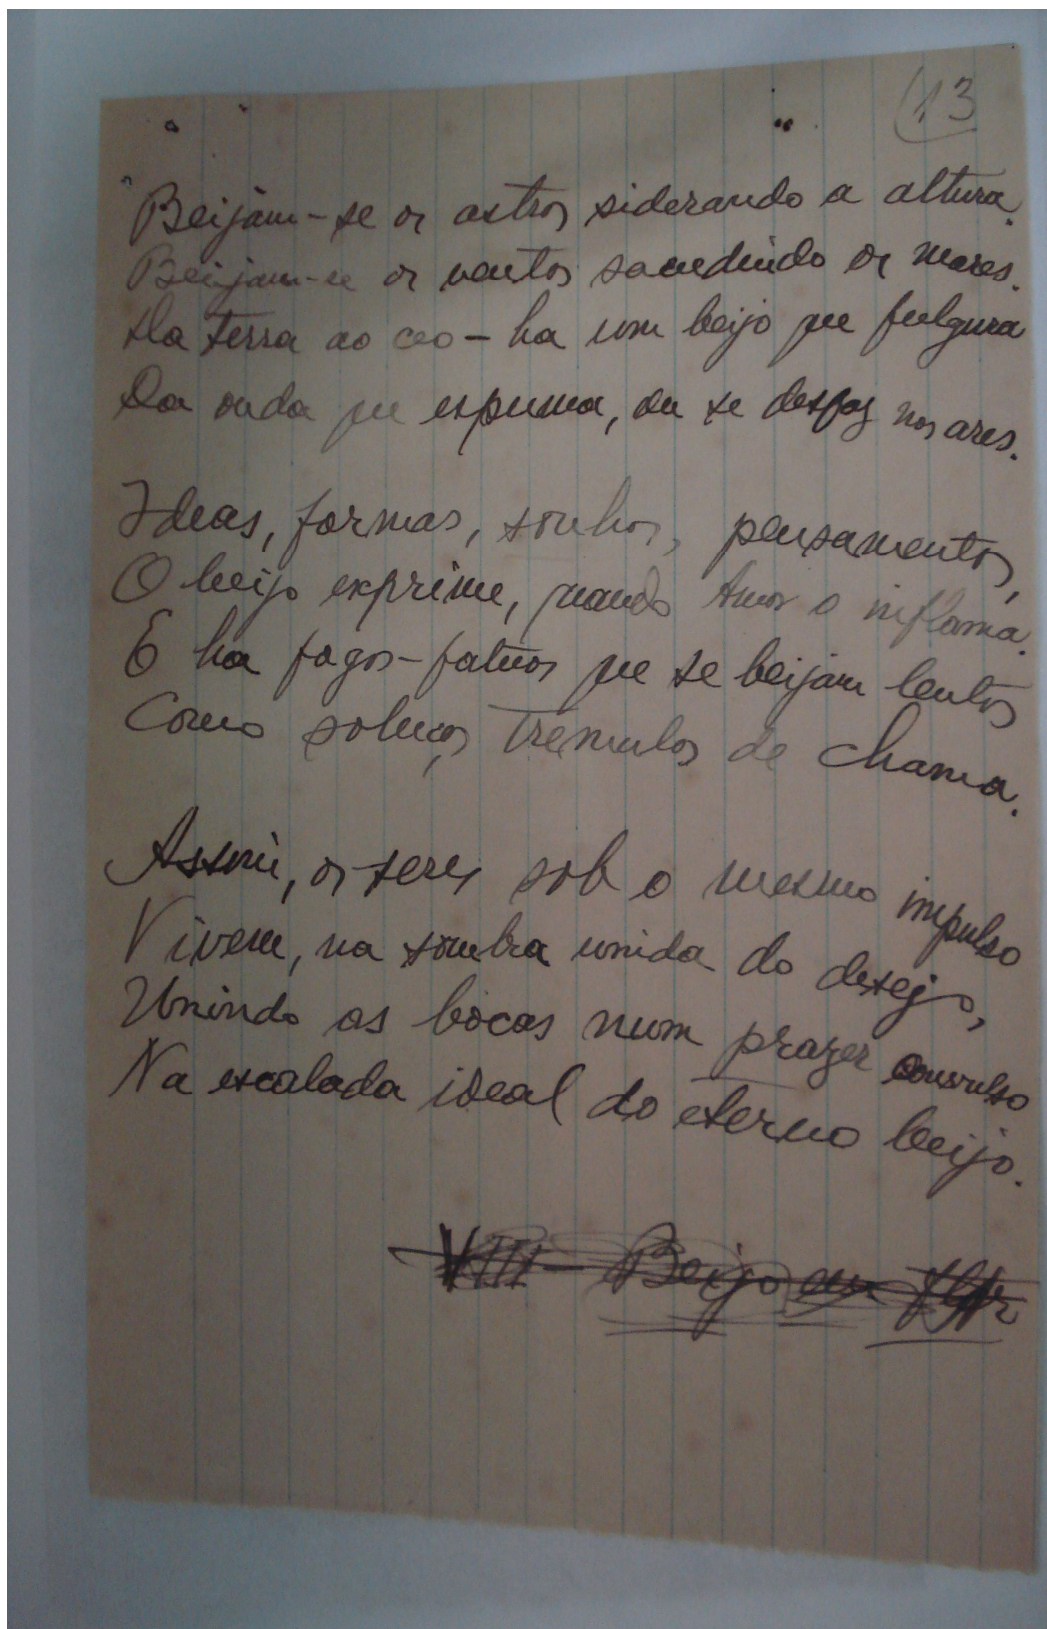 13
Beijam-se os astros siderando a altura.
Beijam-se os ventos sacudindo os mares.
Da terra ao ceo - ha um beijo que fulgura
Da onda que espuma, ou se desfaz nos ares.
Ideas, formas, sonhos, pensamentos,
O beijo exprime, quando Amor o inflama.
E ha fogos-fatuos que se beijam lentos
Como soluços tremulos de chama.
Assim, os seres sob o mesmo impulso
Vivem, na sombra unida do desejo,
Unindo as bocas num prazer convulso
Na escalada ideal do eterno beijo.
VIII - Beijo